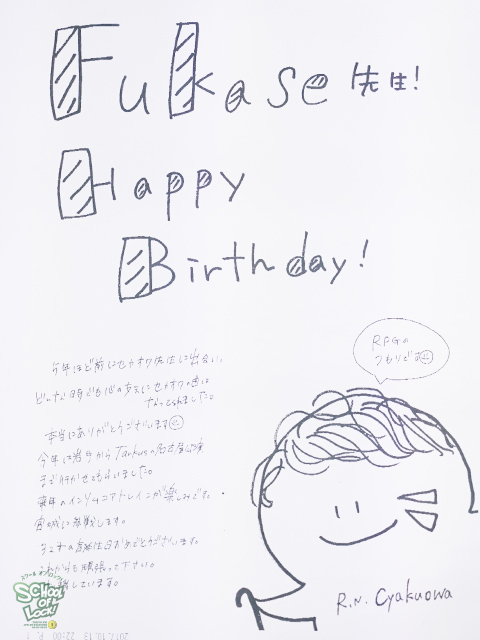 Fukase 先生!
Happy
Birthday!
RPGの
つもりです
今年ほど前にセカオワ先生に出会い、
どんな時でも心の支えにセカオワの曲は
なってくれました。
本当にありがとうございます
今年は岩手からTarkusの名古屋公演
まで行かせてもらいました。
来年のインソムニアトレインが楽しみです。
宮城に参戦します。
32才のお誕生日おめでとうございます。
これからも頑張って下さい。
しています。
R.N. Cyakuowa
スクール オブ ロック!
SCHOOL
OF
LOCK!
2017.10.13 22:00 P. 1